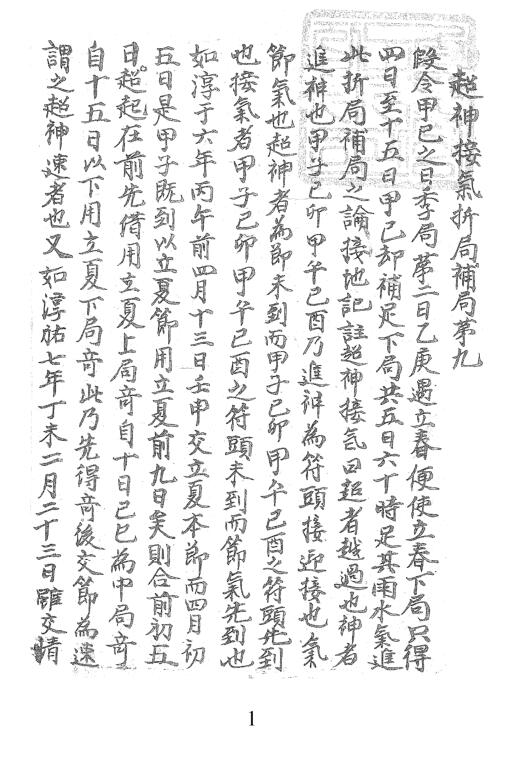 超神接氣拆局補局第九
假令甲巳之日季局第二日乙庚遇立春便使立春下局只得
四日至十五日甲巳却補足下局共五日六十時足其雨水氣進
此折局補局之論接地記註超神接气曰超者越過也神者
進神也甲子己卯甲午己酉乃進神為符頭接迎接也氣
節氣也超神者為節未到而甲子己卯甲午己酉之符頭先到
也接氣者甲子己卯甲午己酉之符頭未到而節氣先到也
如淳于六年丙午前四月十三日壬申交立夏本節而四月初
五日是甲子既到以立夏節用立夏前九日矣則合前初五
日超起在前先借用立夏上局竒自十日己巳為中局竒
自十五日以下用立夏下局竒此乃先得竒後交節為速
謂之超神速者也又如淳祐七年丁未二月二十三日雖交清
1